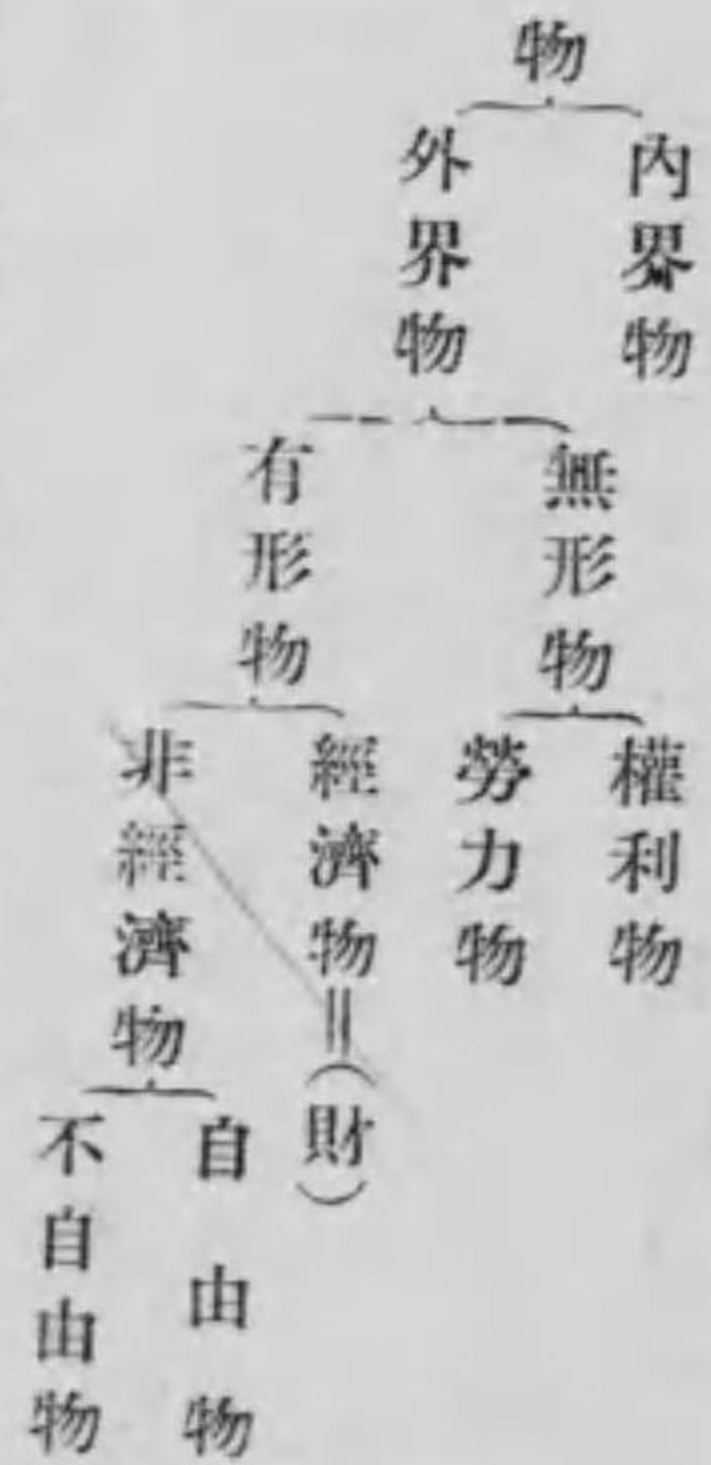 物
內界物
外界物
無形物
有形物
權利物
勞力物
經濟物＝（財）
非經濟物
自由物
不自由物